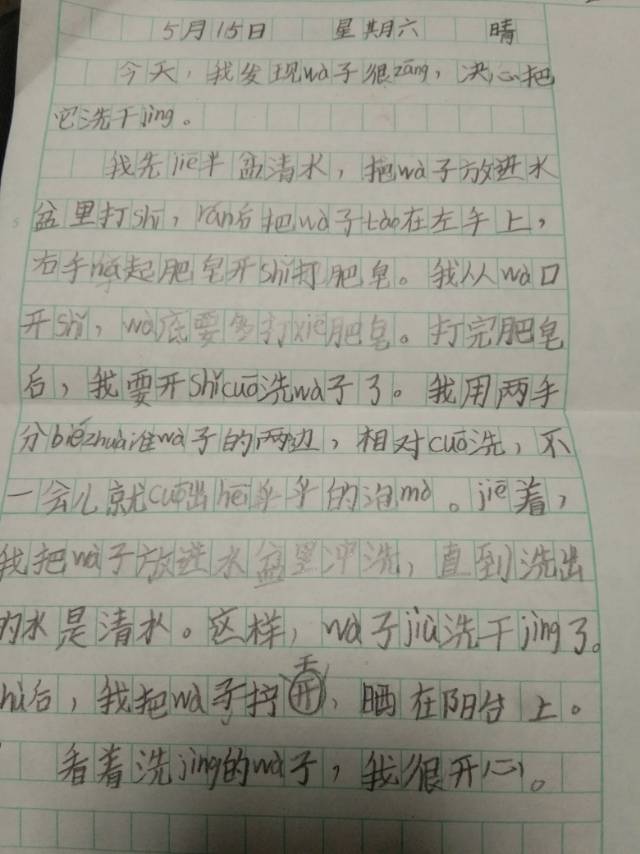 5月15日 星期六 晴
今天，我发现wà子很zāng，决心把
它洗干jìng。
我先jiē半盆清水，把wà子放进水
盆里打shī，rán后把wà子tào在左手上，
右手ná起肥皂开shǐ打肥皂。我从wà口
开shǐ，wà底要多打xiē肥皂。打完肥皂
后，我要开shǐcuō洗wà子了。我用两手
分biézhuā准wà子的两边，相对cuō洗，不
一会儿就cuō出hēi乎乎的泡mò。jiē着，
我把wà子放进水盆里冲洗，直到洗出
的水是清水。这样，wà子jiù洗干jìng了。
后，我把wà子拧干，晒在阳台上。
看着洗jìng的wà子，我很开心。